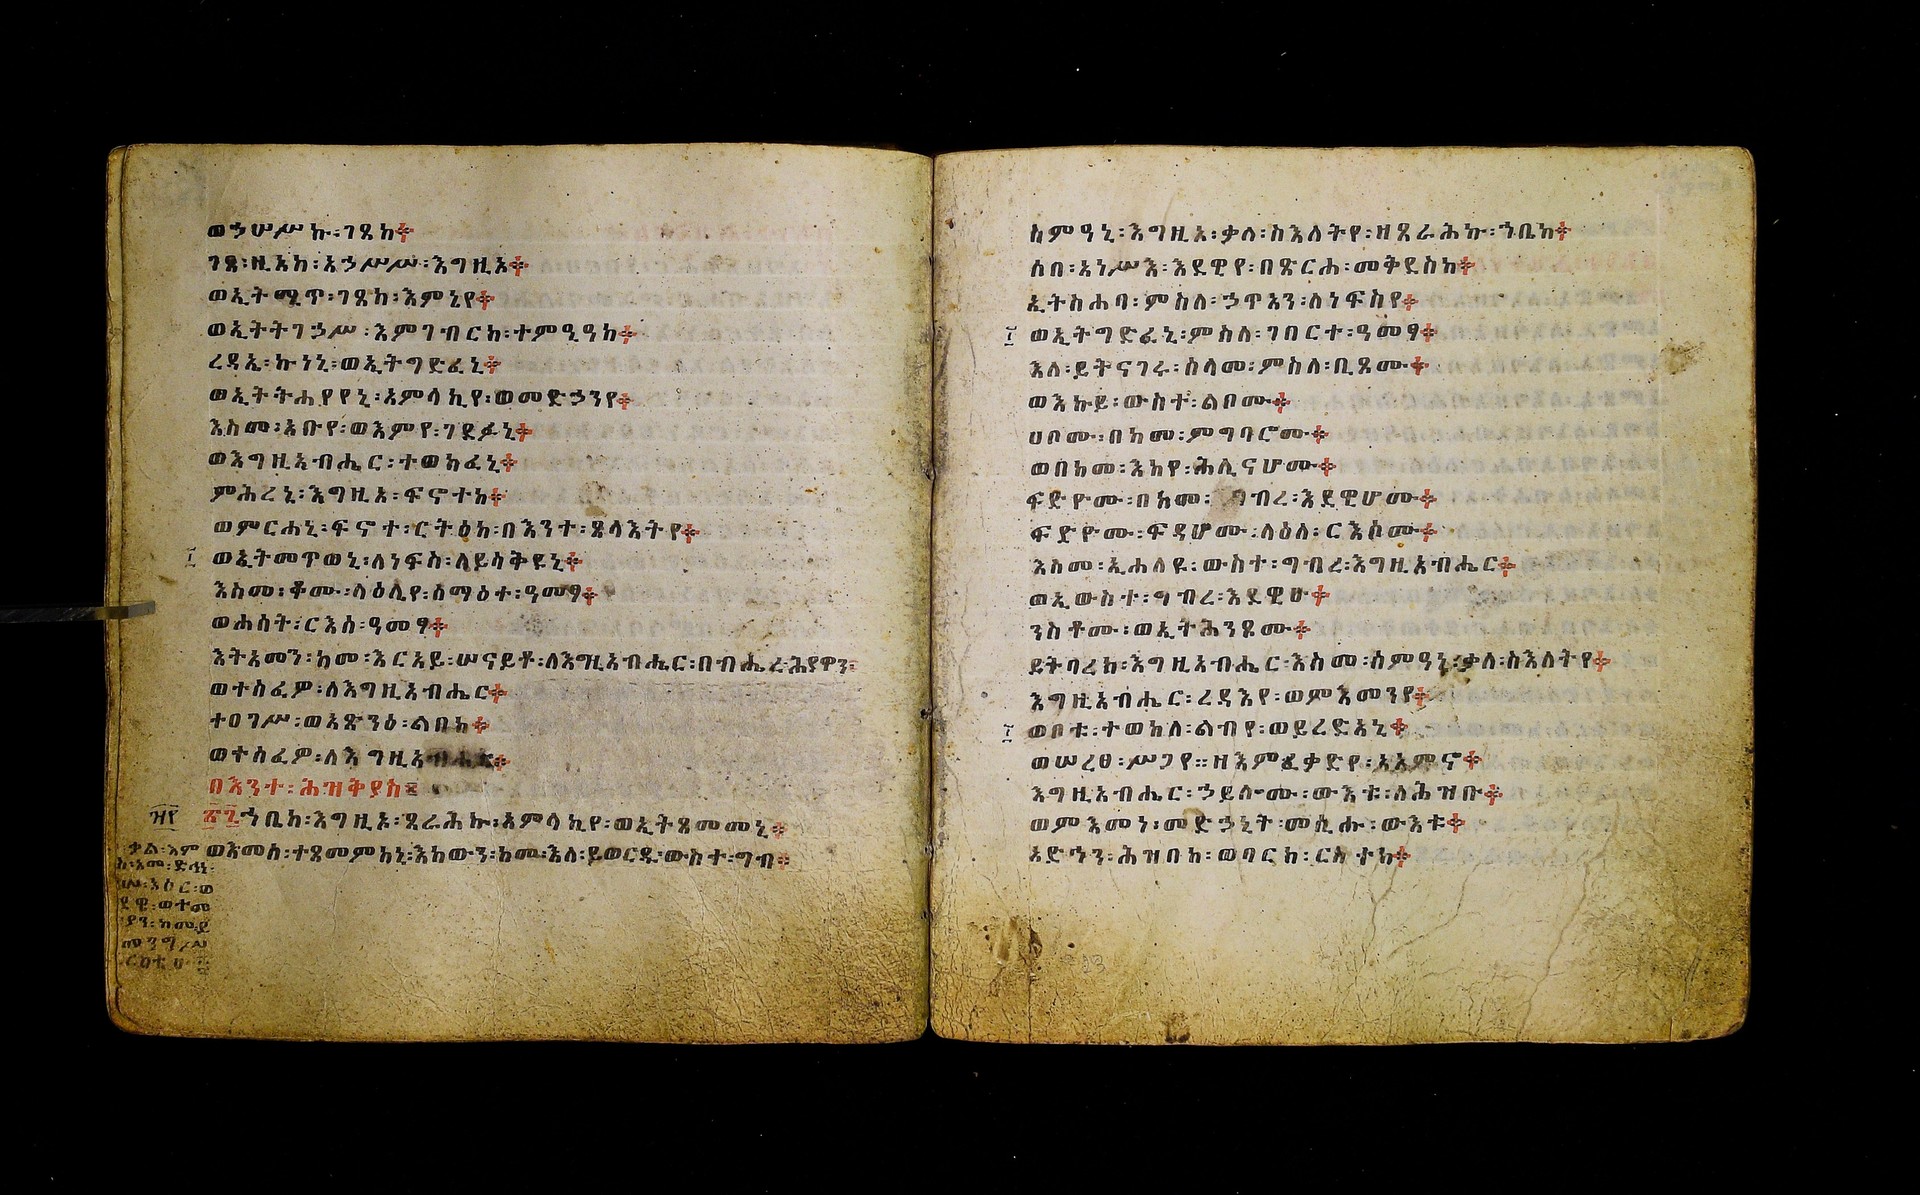 ወኃሠሥኩ፡ገጸከ፨
ገጸ፡ዚአከ፡አኃሥሥ፡እግዚአ፨
ወኢትሚጥ፡ገጸከ፡እምኔየ፨
ወኢትትገኃሥ፡እምገብርከ፡ተምዒዓከ፨
ረዳኢ፡ኩነኒ፡ወኢትግድፈኒ፨
ወኢትትሐየየኒ፡አምላኪየ፡ወመድኃንየ፨
እስመ፡አቡየ፡ወእምየ፡ገደፉኒ፨
ወእግዚአብሔር፡ተወክፈኒ፨
ምሕረኒ፡እግዚኦ፡ፍኖተከ፨
ወምርሐኒ፡ፍኖተ፡ርትዕከ፡በእንተ፡ጸላእትየ፨
ወኢትመጥወኒ፡ለነፍስ፡ለይሳቅዩኒ፨
እስመ፡ቆሙ፡ላዕሌየ፡ሰማዕተ፡ዓመፃ፨
ወሐሰት፡ርእሰ፡ዓመፃ፨
እትአመን፡ከመ፡እርአይ፡ሠናይቶ፡ለእግዚአብሔር፡በብሔረ፡ሕያዋን፨
ወተሰፈዎ፡ለእግዚአብሔር፨
ተዐገሥ፡ወአጽንዕ፡ልበከ፨
ወተሰፈዎ፡ለእግዚአብሔር፨
በእንተ፡ሕዝቅያስ፨
፳፯ ኀቤከ፡እግዚኦ፡ጸራሕኩ፡አምላኪየ፡ወኢትጸመመኒ፨
ወእመሰ፡ተጸመምከኒ፡እከውን፡ከመ፡እለ፡ይወርዱ፡ውስተ፡ግብ፨
ስምዓኒ፡እግዚኦ፡ቃለ፡ስእለትየ፡ዘጸራሕኩ፡ኀቤከ፨
ሶበ፡አነሥእ፡እደዊየ፡በጽርሐ፡መቅደስከ፨
ኢትስሐባ፡ምስለ፡ኃጥአን፡ለነፍስየ፨
፲ ወኢትግድፈኒ፡ምስለ፡ገበርተ፡ዓመፃ፨
እለ፡ይትናገሩ፡ሰላመ፡ምስለ፡ቢጾሙ፨
ወእኩይ፡ውስተ፡ልቦሙ፨
ሀቦሙ፡በከመ፡ምግባሮሙ፨
ወበከመ፡እከየ፡ሕሊናሆሙ፨
ፍድዮሙ፡በከመ፡ግብረ፡እደዊሆሙ፨
ፍድዮሙ፡ፍዳሆሙ፡ላዕለ፡ርእሶሙ፨
እስመ፡ኢሐለዩ፡ውስተ፡ግብረ፡እግዚአብሔር፨
ወኢውስተ፡ግብረ፡እደዊሁ፨
ንስቶሙ፡ወኢትሕንጾሙ፨
ይትባረክ፡እግዚአብሔር፡እስመ፡ሰምዓኒ፡ቃለ፡ስእለትየ፨
እግዚአብሔር፡ረዳእየ፡ወምእመንየ፨
፲ ወቦቱ፡ተወከለ፡ልብየ፡ወይረድአኒ፨
ወሠረፀ፡ሥጋየ፡፡ዘእምፈቃድየ፡አአምኖ፨
እግዚአብሔር፡ኃይሎሙ፡ውእቱ፡ለሕዝቡ፨
ወምእመነ፡መድኃኒት፡መሲሑ፡ውእቱ፨
አድኅን፡ሕዝበከ፡ወባርክ፡ርስተከ፨